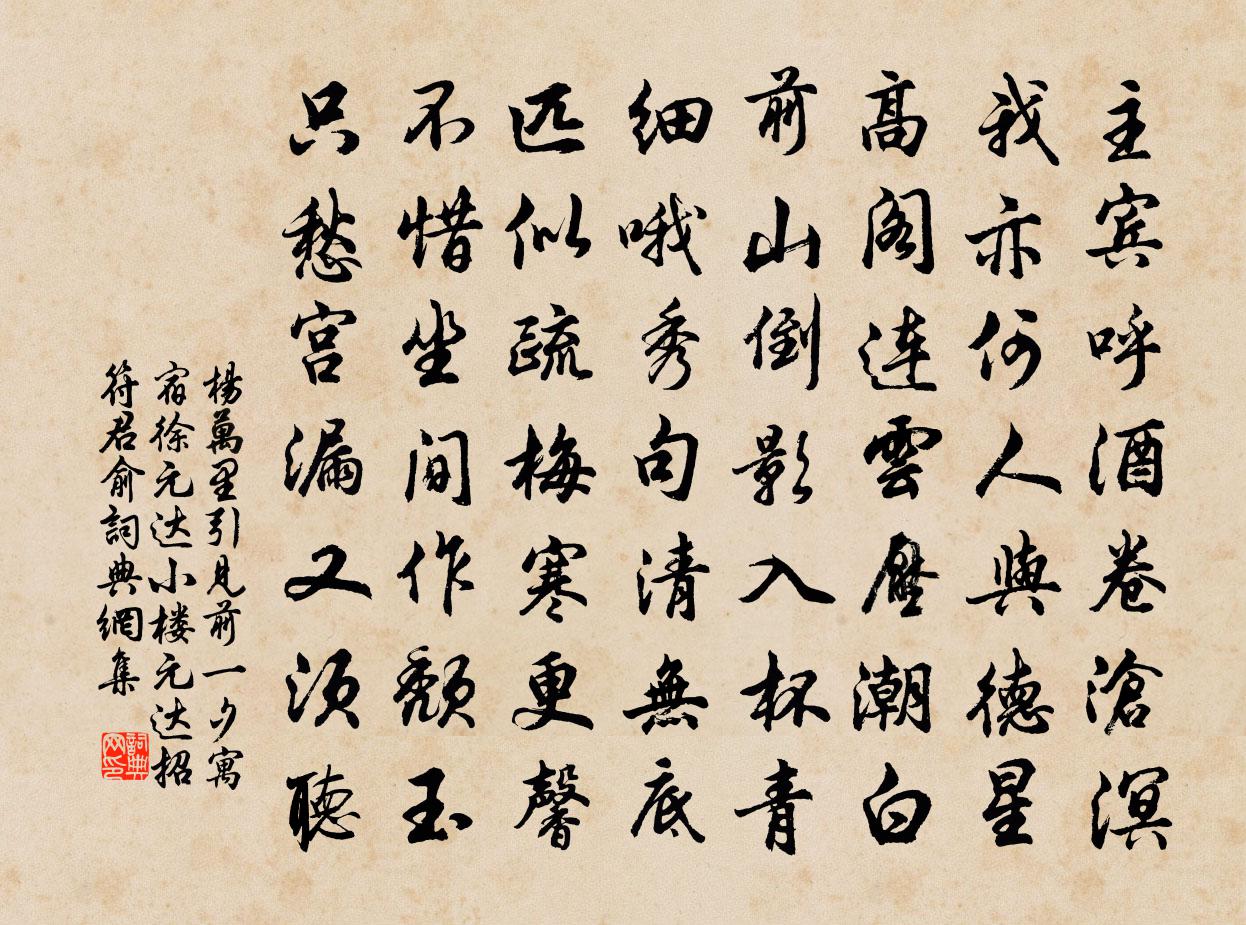 主宾呼酒卷滄溟
我亦何人與德星
高阁连雲壓潮白
前山倒影入杯青
细哦秀句清無底
匹似疏梅寒更馨
不惜坐间作頹玉
只愁宫漏又须聽
楊萬里引見前一夕寓
宿徐元达小楼元达招
符君俞詞典網集
詞典网印